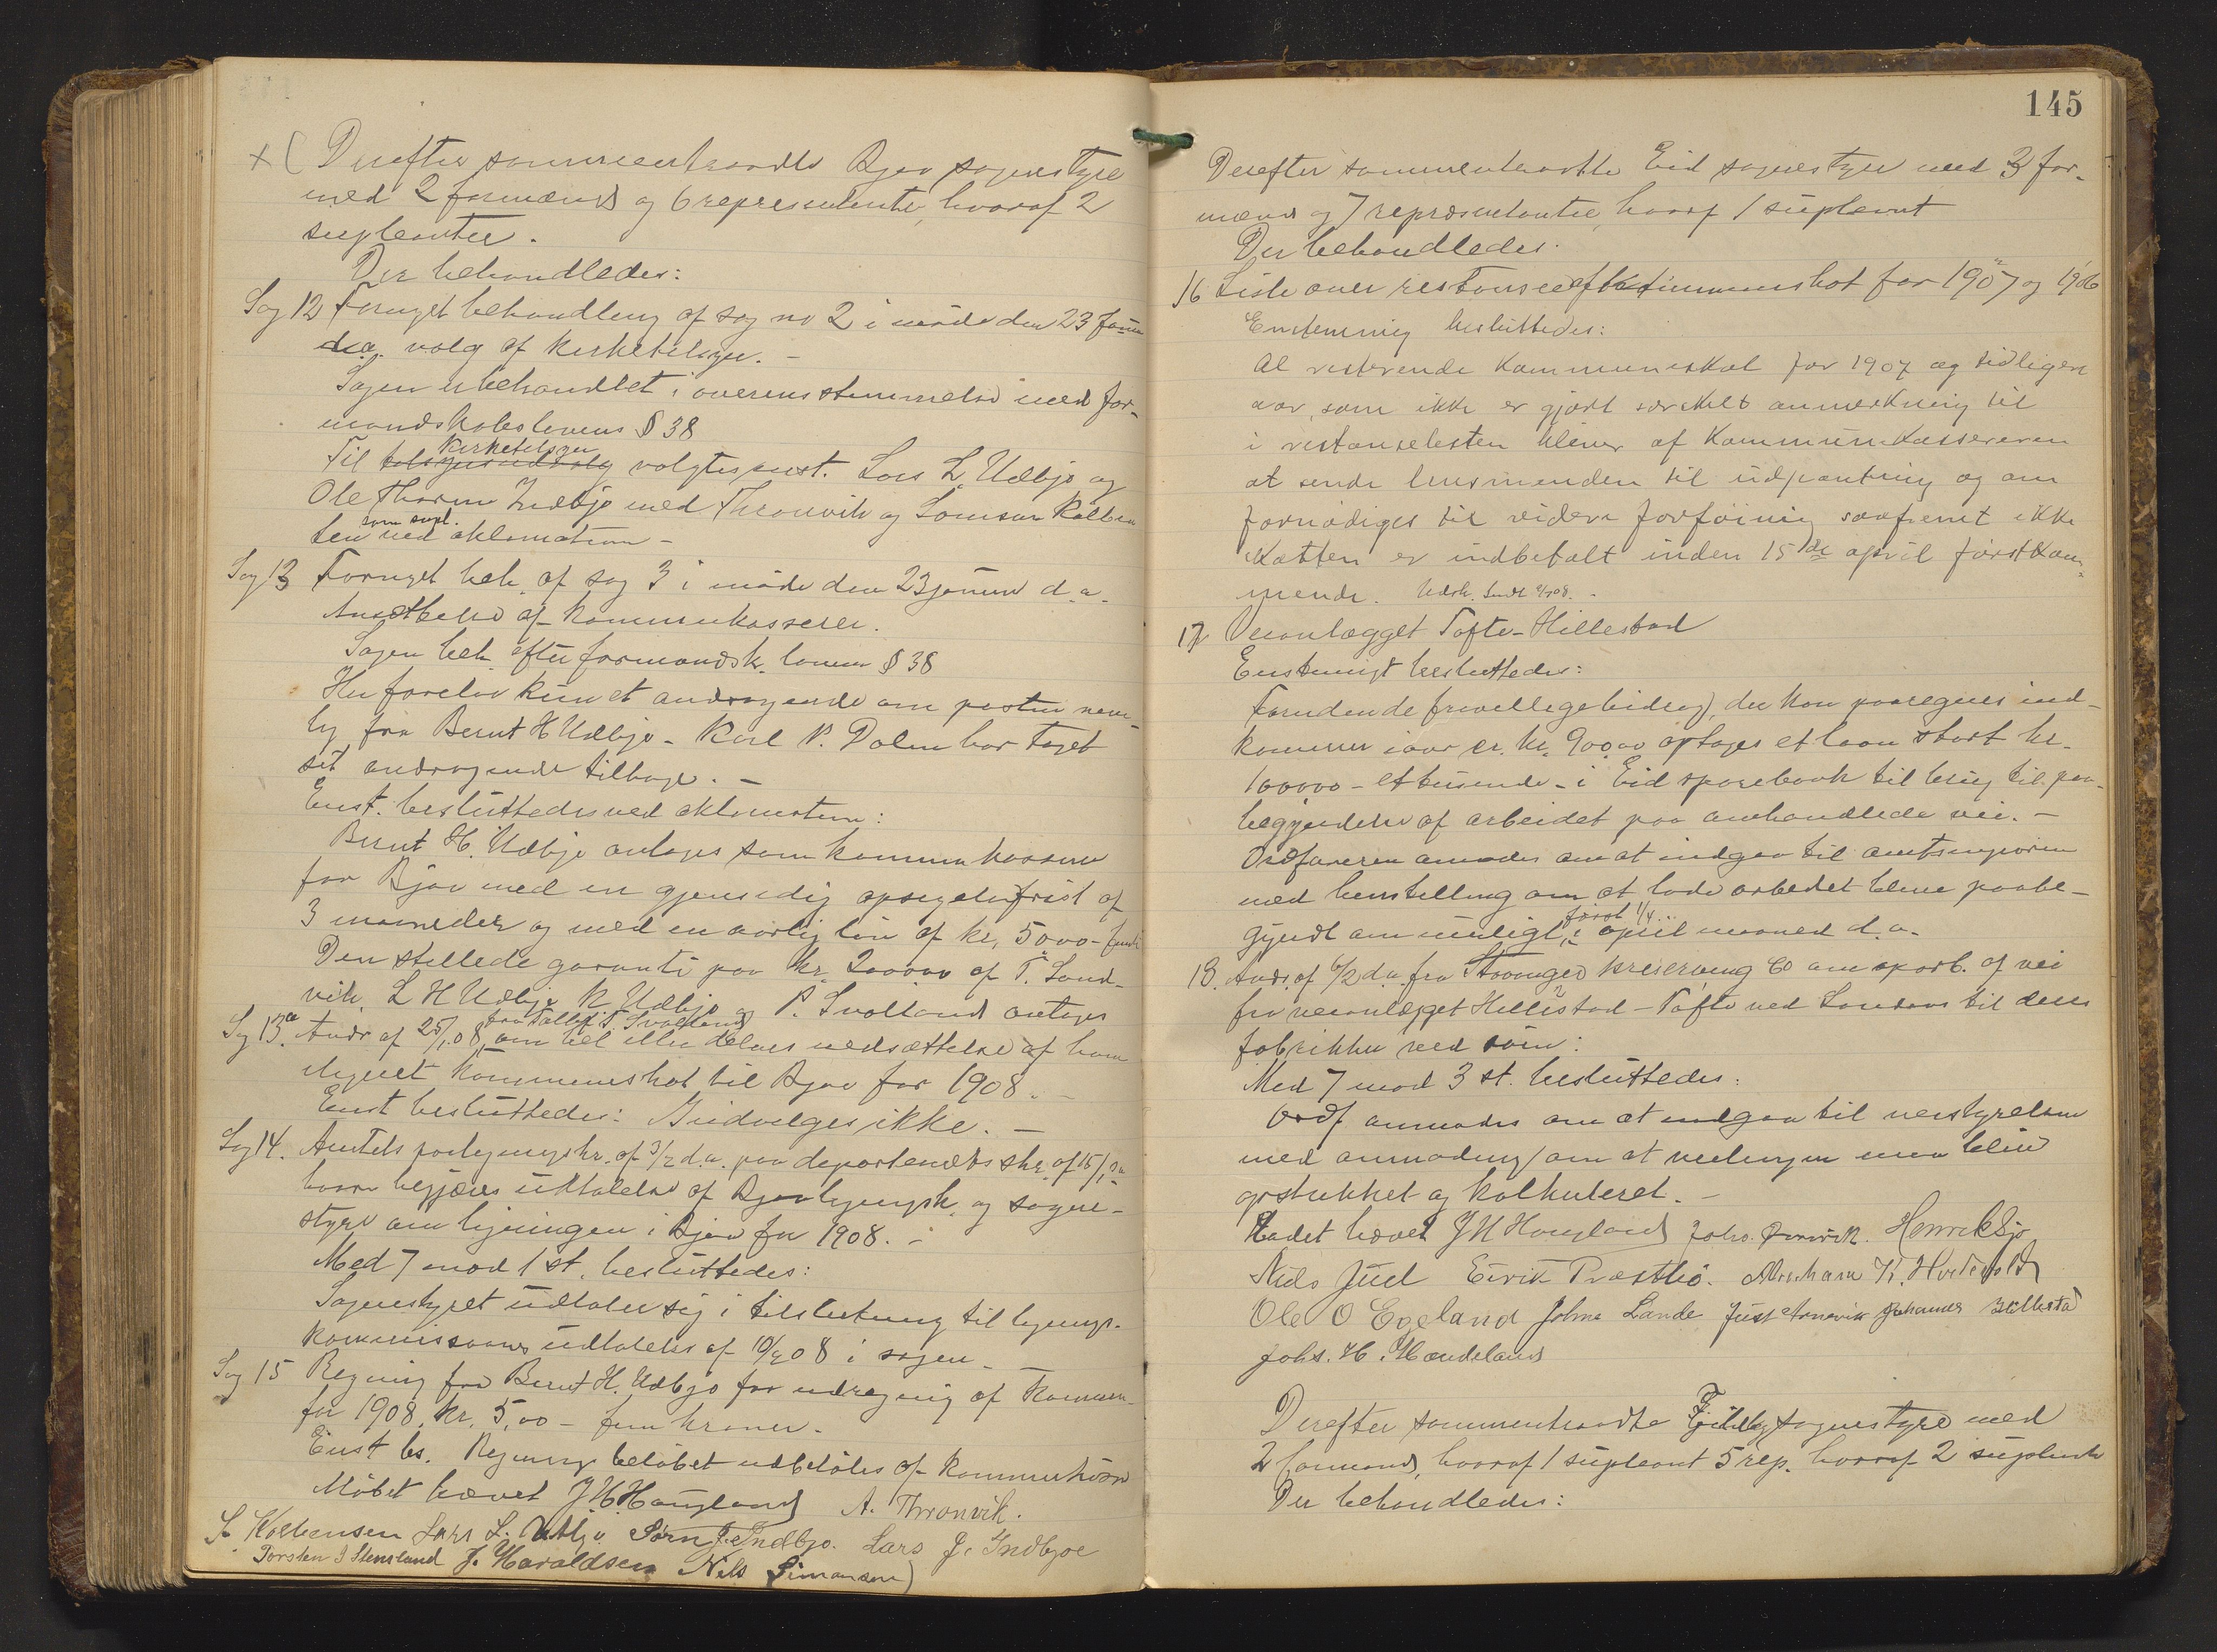 Derefter sammentraadte Bjoa sognestyre
med 2 formænd og 6 represententer, hvoraf 2
supleanter.
Der behandledes:
Sag 12 Fornyet behandling af sag no 2 i møde den 23 janua
d.a. valg af kirketilsyn. -
Sagen er behandlet i overensstemmelse med for-
mandskabslovens § 38
kirketilsyn
Til valgtes enst. Lars L. Udbjo og
Ole Thorsen Indbjo med Thronvik og Simson Kolben
som supl.
sen ved aklamation -
Sag 13 Fornyet beh. af sag 3 i møde den 23 januar d.a.
Ansættelse af kommunekasserer.
Sagen beh. efter formandsk. loven § 38
Her forelaa kun et andragende om posten nem-
lig fra Bernt H Udbjo - Karl P. Dalen har taget
sit andragende tilbage. -
Enst. besluttedes ved aklamation:
Bernt H. Udbjo antages som kommunekasserer
for Bjoa med en gjensidig opsigelsesfrist af
3 maaneder og med en aarlig løn af kr. 50,00 - femti
Den stillede garanti paa kr. 2000,00 af T. Sand-
vik, L H Udbjo, K Udbjo og P. Svolland antages
fra Tallef T. Svolland
Sag 13a. Andr af 25/1 08, om hel eller delvis nedsættelse af ham
ilignet kommuneskat til Bjoa for 1908. -
Enst besluttedes: Indvilges ikke. -
Sag 14. Amtets paategningskr. af 3/2 d.a. paa departemets skr. af 15/1 d.a
hvori begjæres udtalelse af Bjoa ligningsk. og sogne-
styre om ligningen i Bjoa for 1908. -
Med 7 mod 1 st. besluttedes:
Sognestyret udtaler sig i tilslutning til lignings-
kommissionens udtalelse af 10/2 08 i sagen. -
Sag 15 Regning fra Bernt H. Udbjo for udregning af kommun-
for 1908, kr. 5,00 - fem kroner.
Enst bs. Regnings beløbet udbetales af kommunekassen
Møbet hævet J H Haugland A. Thronvik.
S. Kolbensen Lars L. Udbjo Sørn J. Indbjo. Lars J. Indbjoe
Torsten I Stensland J. Haraldsen Nils Simonsen
145
Derefter sammentraadte Eid sognestyre med 3 for-
mænd og 7 repræsentanter, hvoraf 1 supleant
Der behandledes:
16 Liste over restanser af kommuneskat for 1907 og 1906
Enstemmig besluttedes:
Al resterende Kommuneskat for 1907 og tidligere
aar, som ikke er gjort særskilt anmerkning til
i restanselisten bliver af Kommunekassereren
at sende lensmanden til udpantning og om
fornødiges til videre forføining saafremt ikke
skatten er indbetalt inden 15de april førstkom-
mende. Udsk. sendt
17 Veianlægget Tofte - Hillestad
Enstemigt besluttedes:
Foruden de frivellige bidrag, der kan paaregnes ind-
kommer iaar er. kr. 900,00 optages et laan stort kr.
1000,00 - et tusende - i Eid sparebank til brug til paa-
begyndelse af arbeidet paa omhandlede vei. -
Ordføreren anmodes om at indgaa til amtsingeniøren
med henstilling om at lade arbeidet blive paabe-
først 1/4
gyndt om muligt, i april maaned d.a.
18. Andr. af 6/2 d.a. fra Stavanger Preserving Co om oparb. af vei
fra veianlægget Hillestad - Tofte ved Sandens til deres
fabrikker ved søen:
Med 7 mod 3 st. besluttedes:
Ordf. anmodes om at indgaa til veistyrelsen
med anmodning om at veilinjen maa blive
opstukket og kalkuleret. -
Møbet hævet J H Haugland Johs. Henrik Sjo
Niels Juel Eirik Præsthö. Abraham K.
Ole O Egeland Johne Lande Just Arnevik Johannes Hillestad
Johs. H. Handeland
Derefter sammentraadte Fjelby sognestyre med
2 formænd, hvoraf 1 supleant 5 rep. hvoraf 2 supleante
Der behandledes: